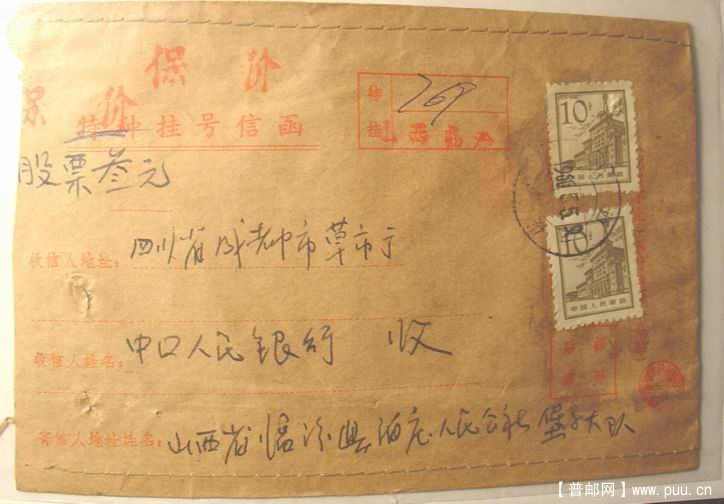 保 价
保 价
特种挂号信函
特挂 769
山西临汾
股票叁元
10
中国人民邮政
10
中国人民邮政
收信人地址：四川省成都市草市
收信人姓名：中口人民银行 收
寄信人地址姓名：山西省临汾县泊庄人民公社堡子大队
【普邮网】www.puu.cn